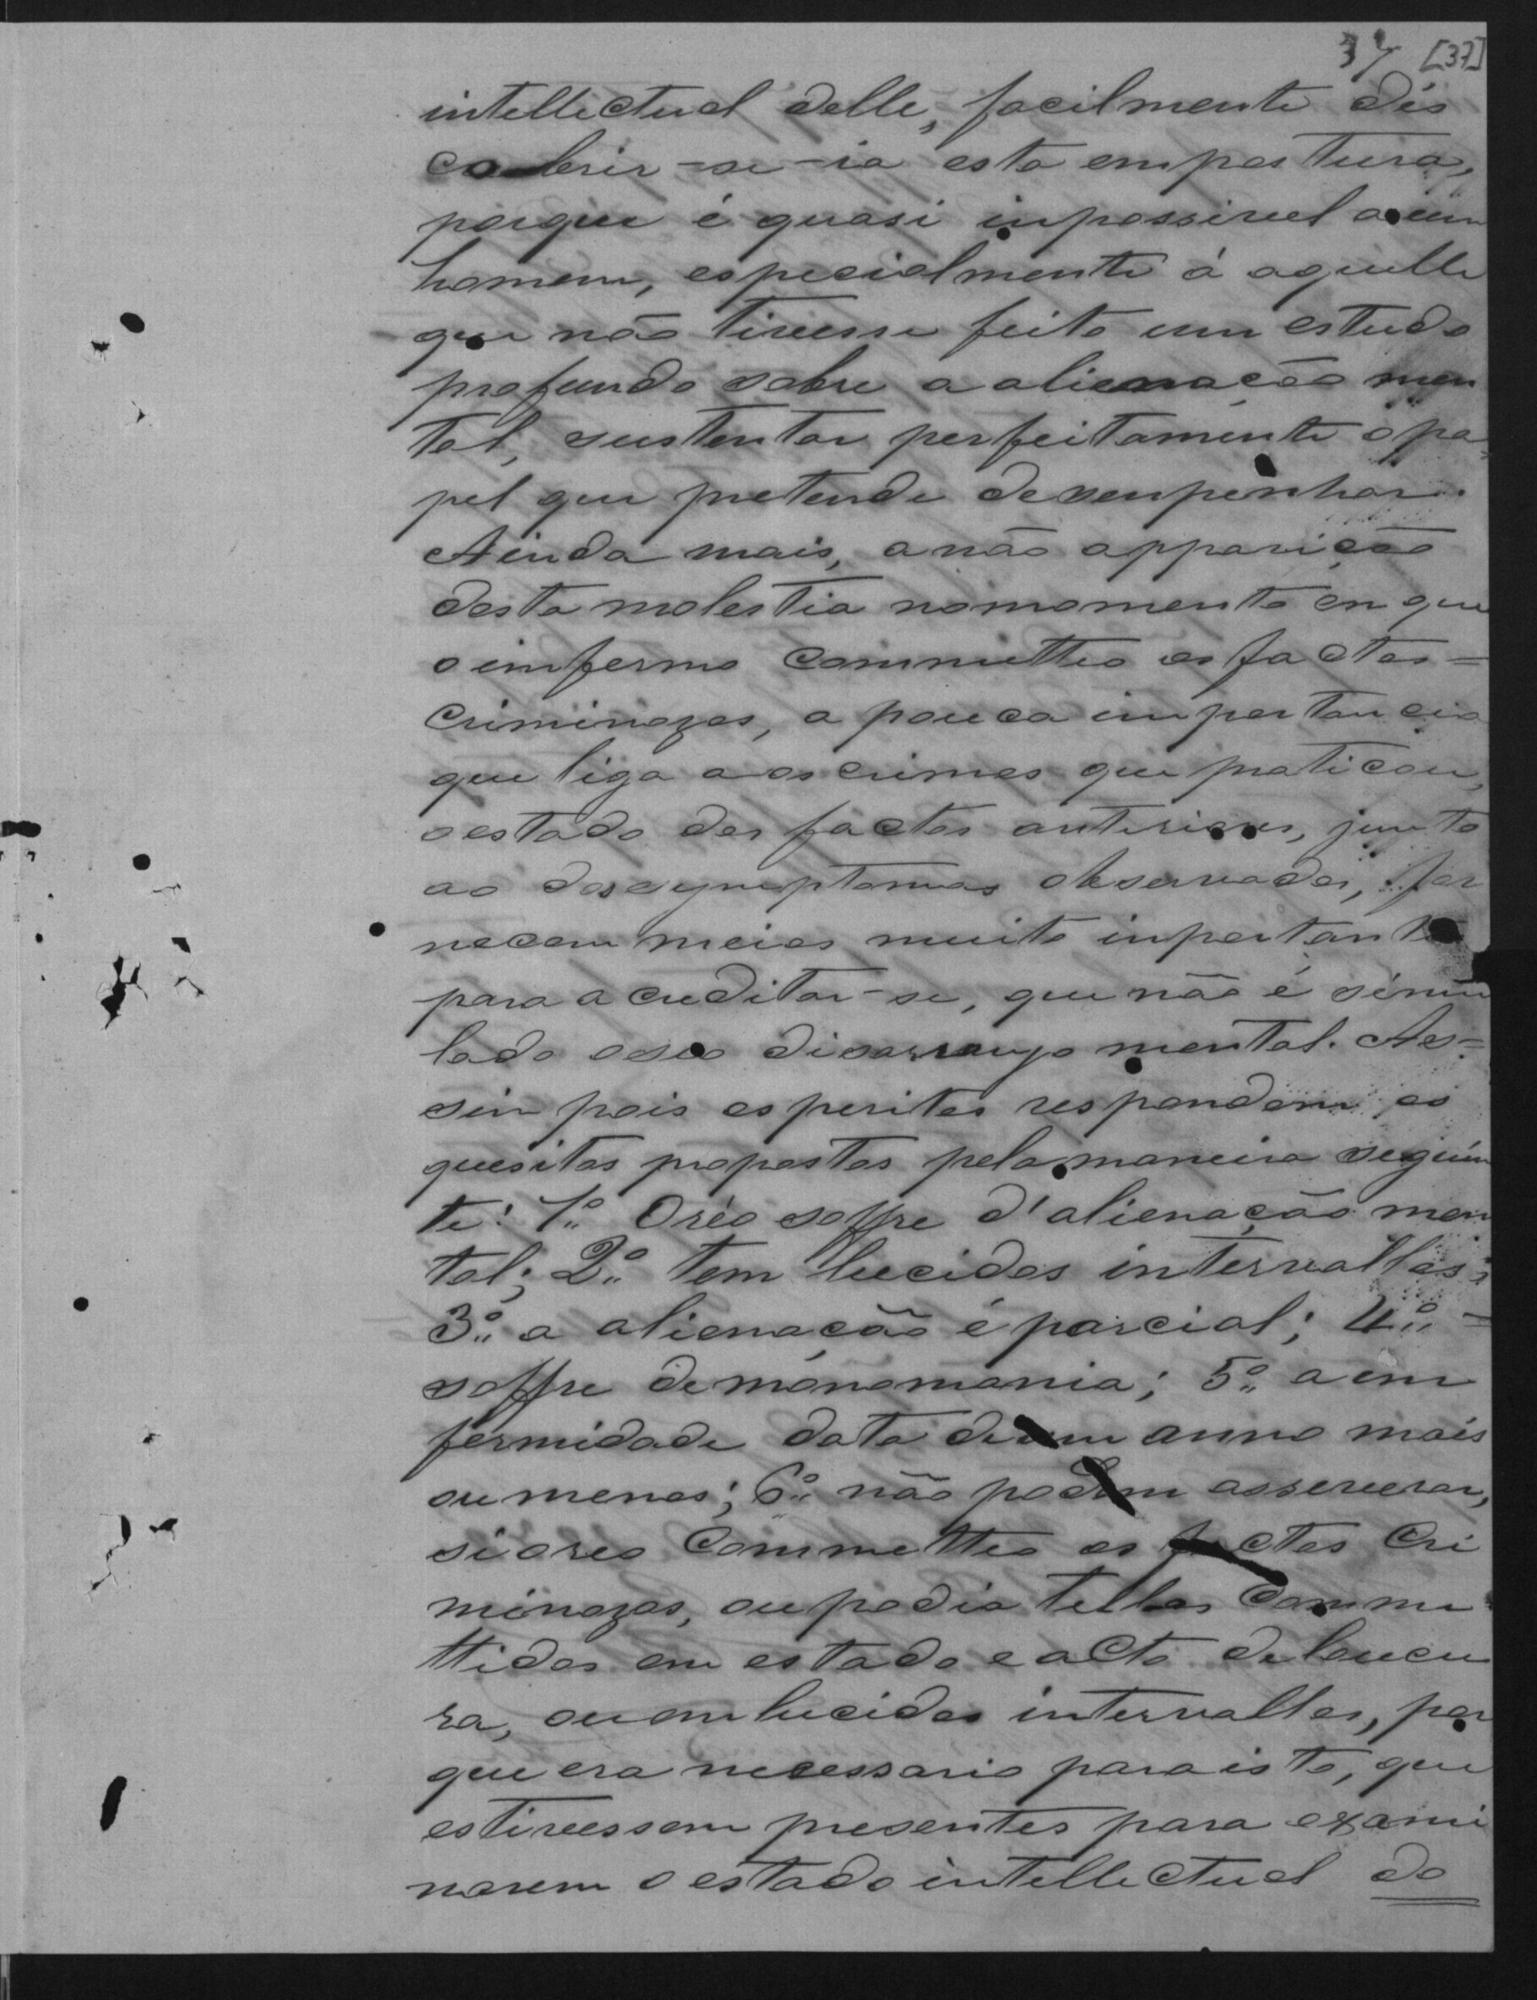 37 [37]
intellectual delle, facilmente dés
cobrir-se-ia esta empostura,
porque é quasi inpossivel a um
homem, especialmente á aquelle
que não tivesse feito um estudo
profundo sobre a alienação men
tal, sustentar perfeitamente o pa
pel que pretende desenpenhar.
Ainda mais, a não apparição
desta molestia no momento en que
o imfermo committeo os factos=
criminozos, a pouca importancia
que liga a os crimes que praticou,
o estado dos factos anteriores, junto
ao dos symptomas observados, for
necem meios muito inportantes
para acreditar-se, que não é simu
lado o seo disarranjo mental. As=
sin pois os peritos respondem os
quesitos propostos pela maneira seguin
te: 1º O réo soffre d'alienação men
tal; 2º tem lucidos intervallos;
3º a alienação é parcial; 4º =
soffre de monomania; 5º a em
fermidade data de um anno mais
ou menos; 6º não podem asseverar,
si o reo committeo os factos cri
minozos, ou podia tellos comme
ttidos em estado e acto de loucu
ra, ou em lucidos intervallos, por
que era necessario para isto, que
estivessem presentes para exami
narem o estado intellectual do